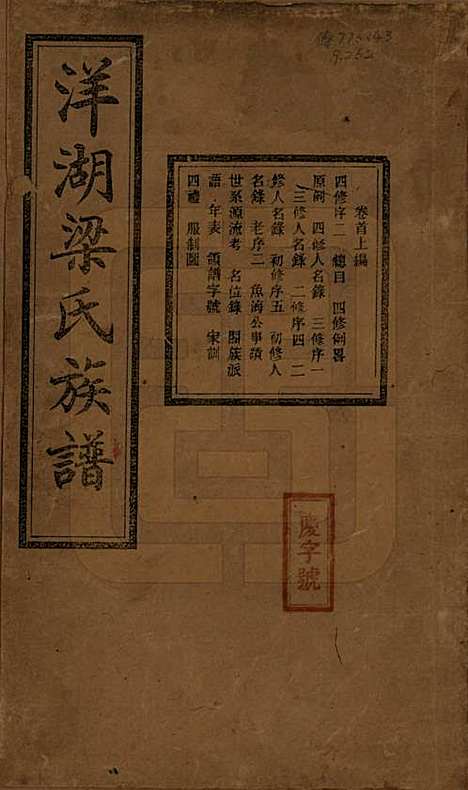 洋湖梁氏族譜
卷首上編
四修序二　總目　四修例畧
原刻　四修人名錄　三修序一
三修人名錄　二修序四　二
修人名錄　初修序五　初修人
名錄　老序二　魚海公事蹟
世系源流考　名位錄　闔族派
語　年表　領譜字號　宗訓
四禮　服制圖
慶字號